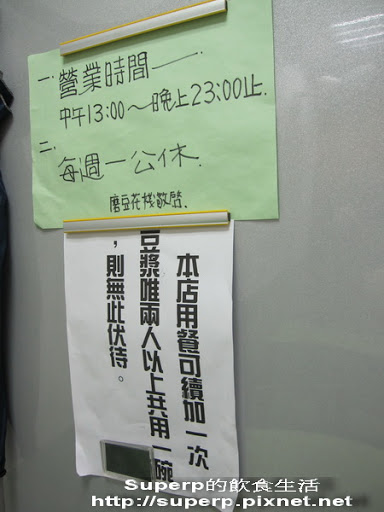 一. 營業時間——.
中午13:00～晚上23:00止.
二. 每週一公休.
磨豆花棧敬啟.
本店用餐可續加一次
豆漿唯兩人以上共用一碗
，則無此伏待。
Superp的飲食生活
http://superp.pixnet.net